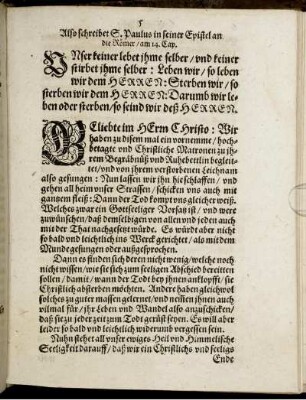 5
Also schreibet S. Paulus in seiner Epistel an
die Römer/am 14. Cap.
UNser keiner lebet jhme selber/vnd keiner
stirbet jhme selber: Leben wir/so leben
wir dem HERREN: Sterben wir/so
sterben wir dem HERREN: Darumb wir le-
ben oder sterben/so seind wir deß HERREN.
GEliebte im HErrn CHristo: Wir
haben zu disem mal ein vornemme/hoch-
betagte vnd Christliche Matronen zu ih-
rem Begräbnüß vnd Ruhebettlin begleit-
tet/vnd von ihrem verstorbenen Leichnam
also gesungen: Nun lassen wir ihn hie schlaffen/vnd
gehen all heim vnser Strassen/schicken vns auch mit
gantzem fleiß: Dann der Tod kompt vns gleicher weiß.
Welches zwar ein Gottseeliger Vorsatz ist/vnd were
zuwünschen/daß demselbigen von allen vnd jeden auch
mit der That nachgesetzt würde. Es würdt aber nicht
so bald vnd leichtlich ins Werck gerichtet/als mit dem
Munde gesungen oder außgesprochen.
Dann es finden sich deren nicht wenig/welche noch
nicht wissen/wie sie sich zum seeligen Abschied bereitten
sollen/damit/wann der Tod bey jhnen anklopfft/sie
Christlich absterben möchten. Andere haben gleichwol
solches zu guter massen gelernet/vnd nemmen jhnen auch
vilmal für/jhr Leben vnd Wandel also anzuschicken/
daß sie zu jeder zeit zum Todt gerüst seyen. Es will aber
leider so bald vnd leichtlich widerumb vergessen sein.
Nuhn stehet all vnser ewiges Heil vnd Himmelische
Seeligkeit darauff/daß wir ein Christlichs vnd seeligs
Ende